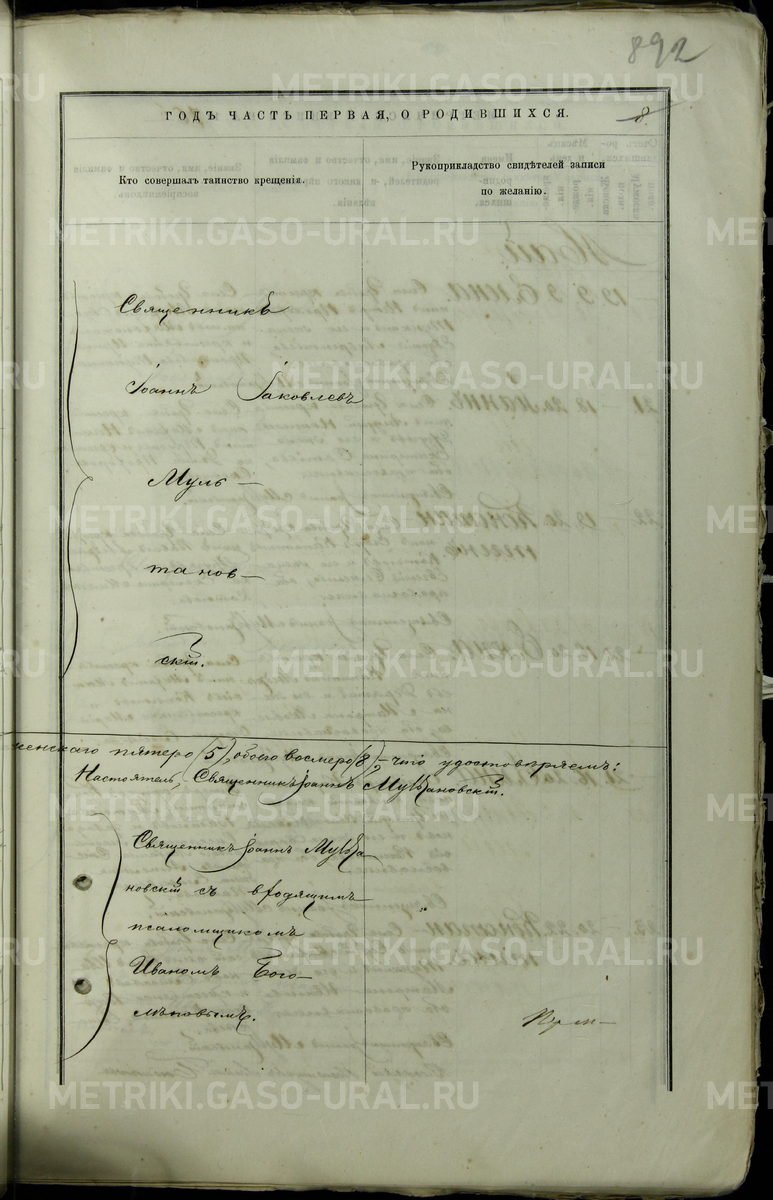 892
METRIKI.GASO-URAL.RU
ГОДЪ ЧАСТЬ ПЕРВАЯ, О РОДИВШИХСЯ.
8
Кто совершалъ таинство крещенія.
Рукоприкладство свидѣтелей записи
по желанію.
Священникъ
Іоаннъ Іаковлевъ
Муль-
танов-
скій.
пятеро (5), обоего восмеро (8), что удостовѣряемъ:
Настоятель, Священникъ Іоаннъ Мултановскій.
Священникъ Іоаннъ Мулта-
новскій съ
псаломщикомъ
Иваномъ Бого-